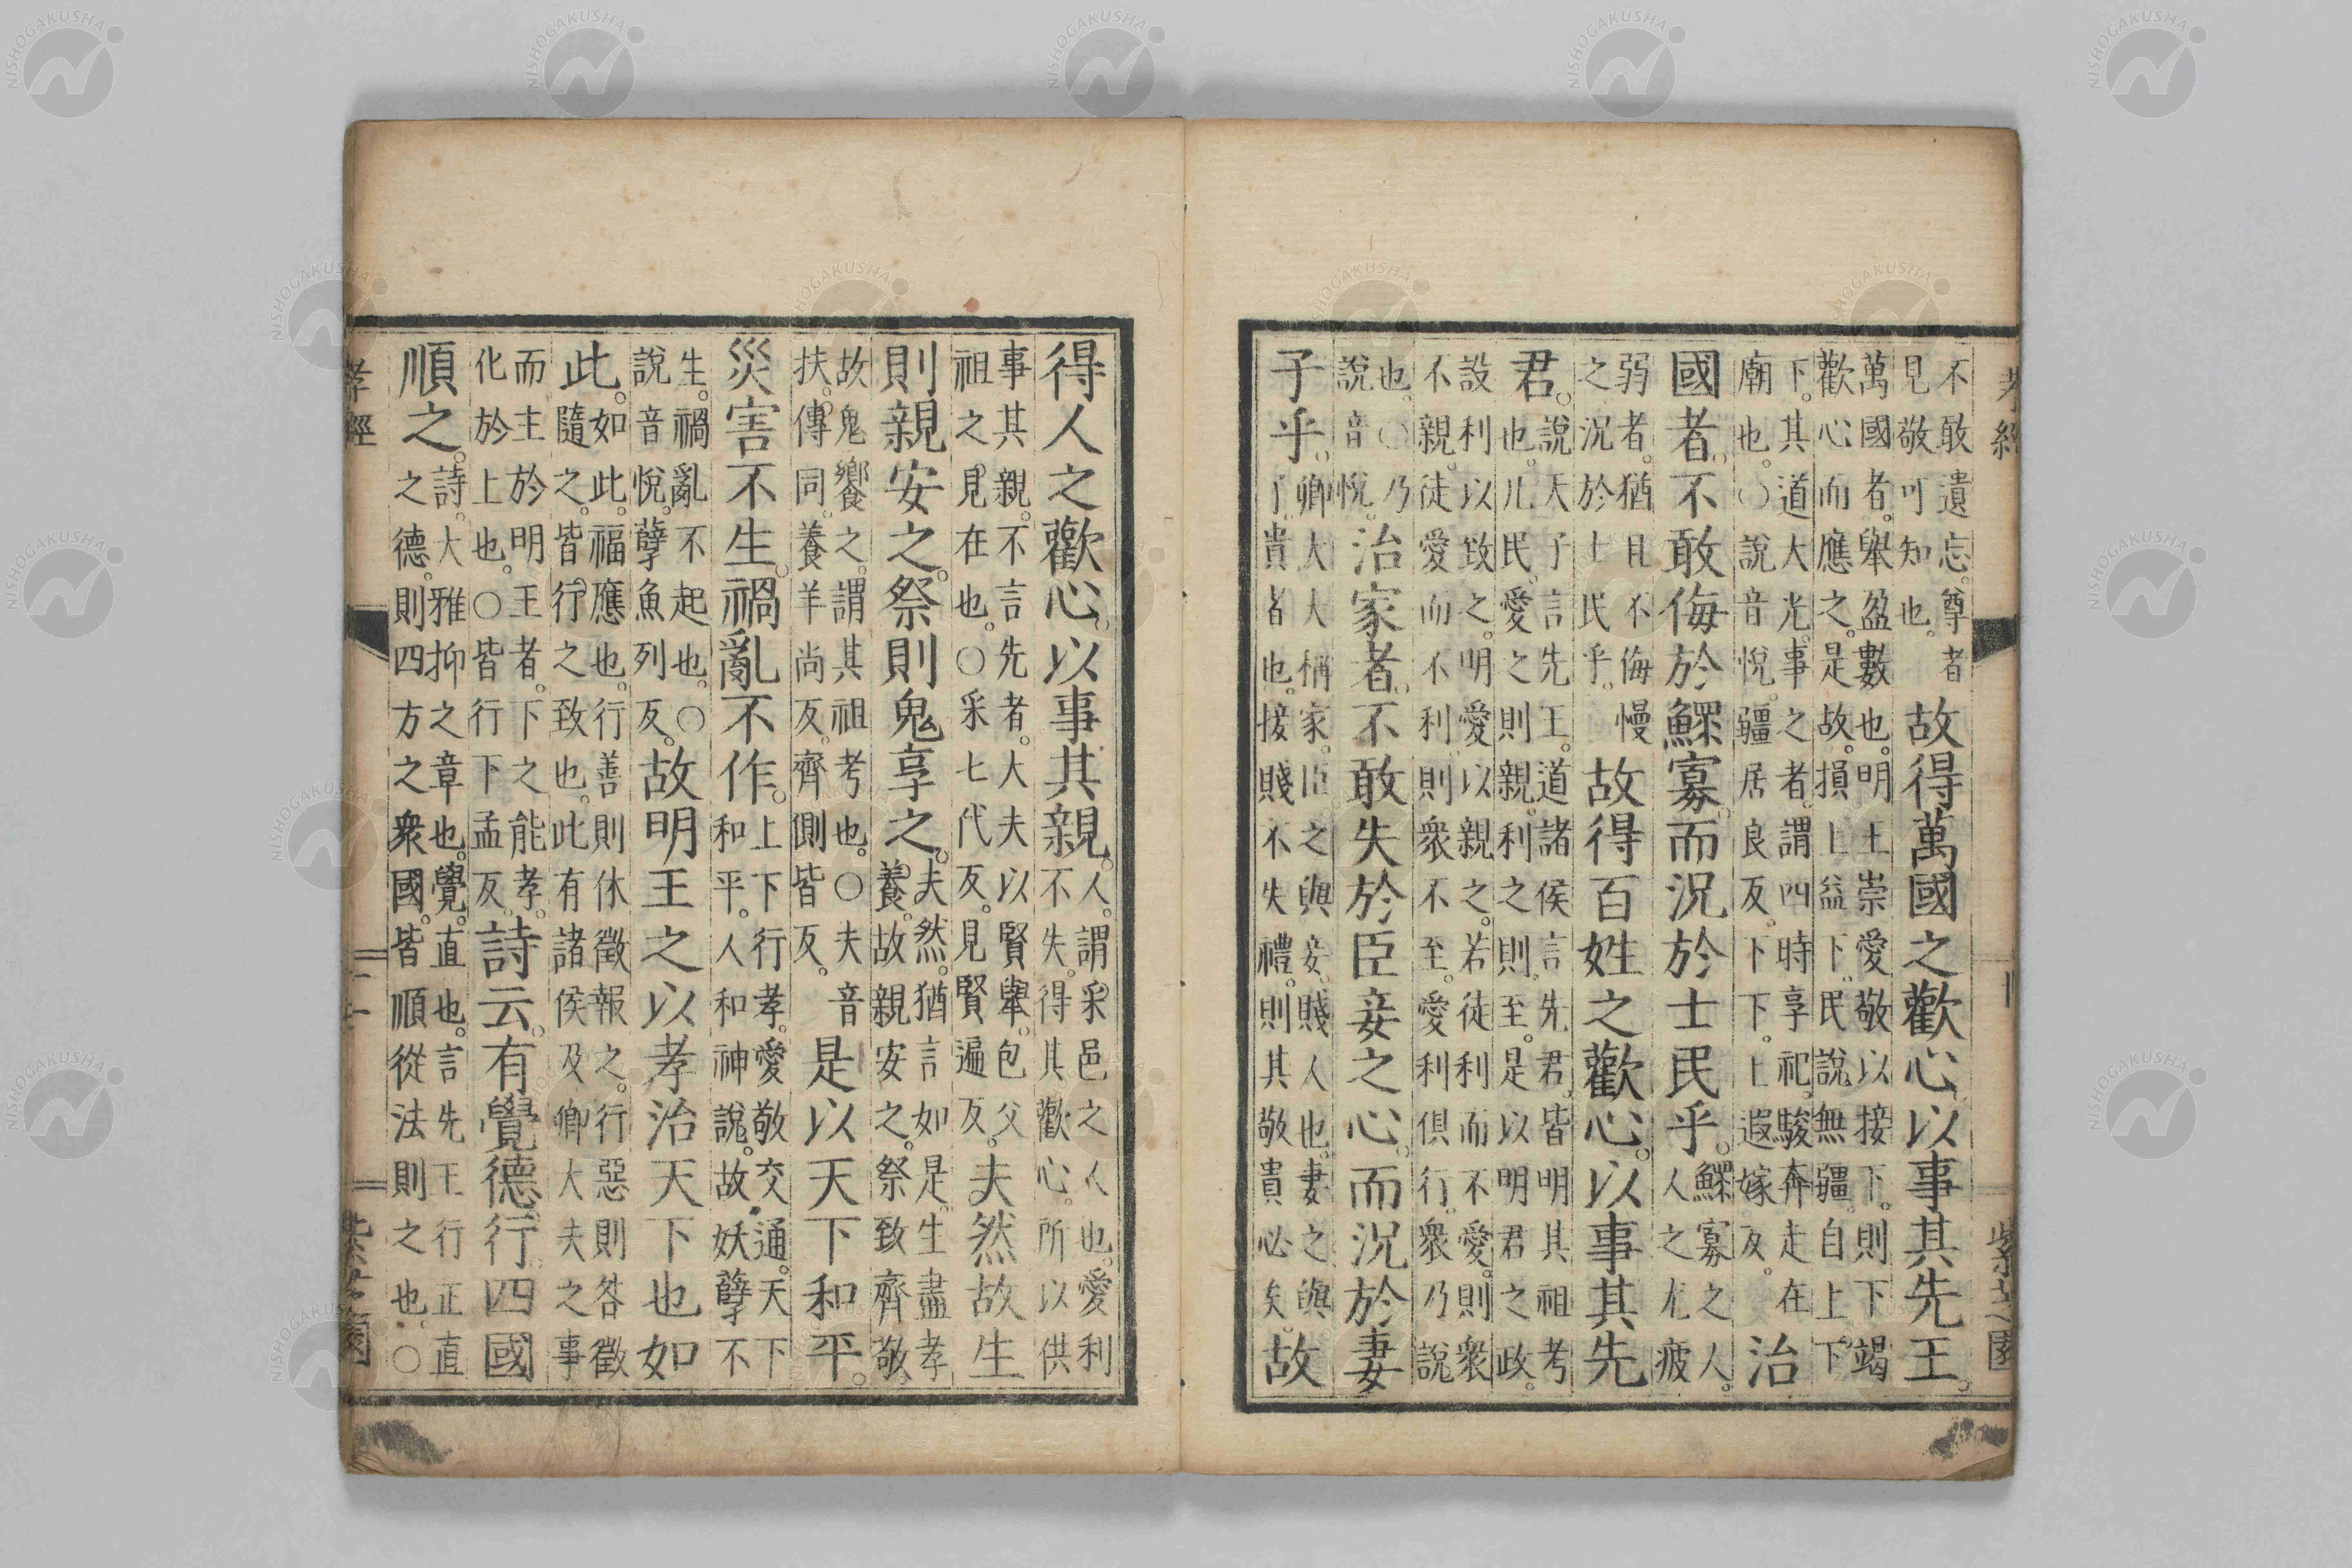 孝經
不敢遺忘。尊者
見敬可知也。
故得萬國之歡心以事其先王。
萬國者。舉盈數也。明王崇愛敬以接下。則下竭
歡心而應之。是故。損上益下。民說無疆。自上下
下。其道大光。事之者。謂四時享祀。駿奔走在
廟也。○說音悅。疆居良反。下下。上遐嫁反。
治
國者。不敢侮於鰥寡。而況於士民乎。
鰥寡之人。
人之尤疲
弱者。猶且不侮慢
之況於士民乎。
故得百姓之歡心。以事其先
君。
說天子言先王。道諸侯言先君。皆明其祖考
也。凡民。愛之則親。利之則至。是以明君之政。
設利以致之。明愛以親之。若徒利而不愛。則衆
不親。徒愛而不利。則衆不至。愛利俱行。衆乃說
也。○乃
說音悅。
治家者。不敢失於臣妾之心。而況於妻
子乎。
卿大夫稱家。臣之與妾。賤人也。妻之與
子。貴者也。接賤不失禮。則其敬貴必矣。
故
得人之歡心。以事其親。
人。謂采邑之人也。愛利
不失。得其歡心。所以供
事其親。不言先者。大夫以賢舉。包父
祖之見在也。○采七代反。見賢遍反。
夫然故生
則親安之。祭則鬼享之。
夫然。猶言如是。生盡孝
養。故親安之。祭致齊敬。
故鬼饗之。謂其祖考也。○夫音
扶。傳同。養羊尚反。齊側皆反。
是以天下和平。
災害不生。禍亂不作。
上下行孝。愛敬交通。天下
和平。人和神說。故妖孽不
生。禍亂不起也。○
說音悅。孽魚列反。
故明王之以孝治天下也如
此。
如此。福應也。行善則休徵報之。行惡則咎徵
隨之。皆行之致也。此有諸侯及卿大夫之事
而主於明王者。下之能孝。
化於上也。○皆行下孟反。
詩云。有覺德行。四國
順之。
詩。大雅抑之章也。覺。直也。言先王行正直
之德。則四方之衆國。皆順從法則之也。○
孝經
紫芝園